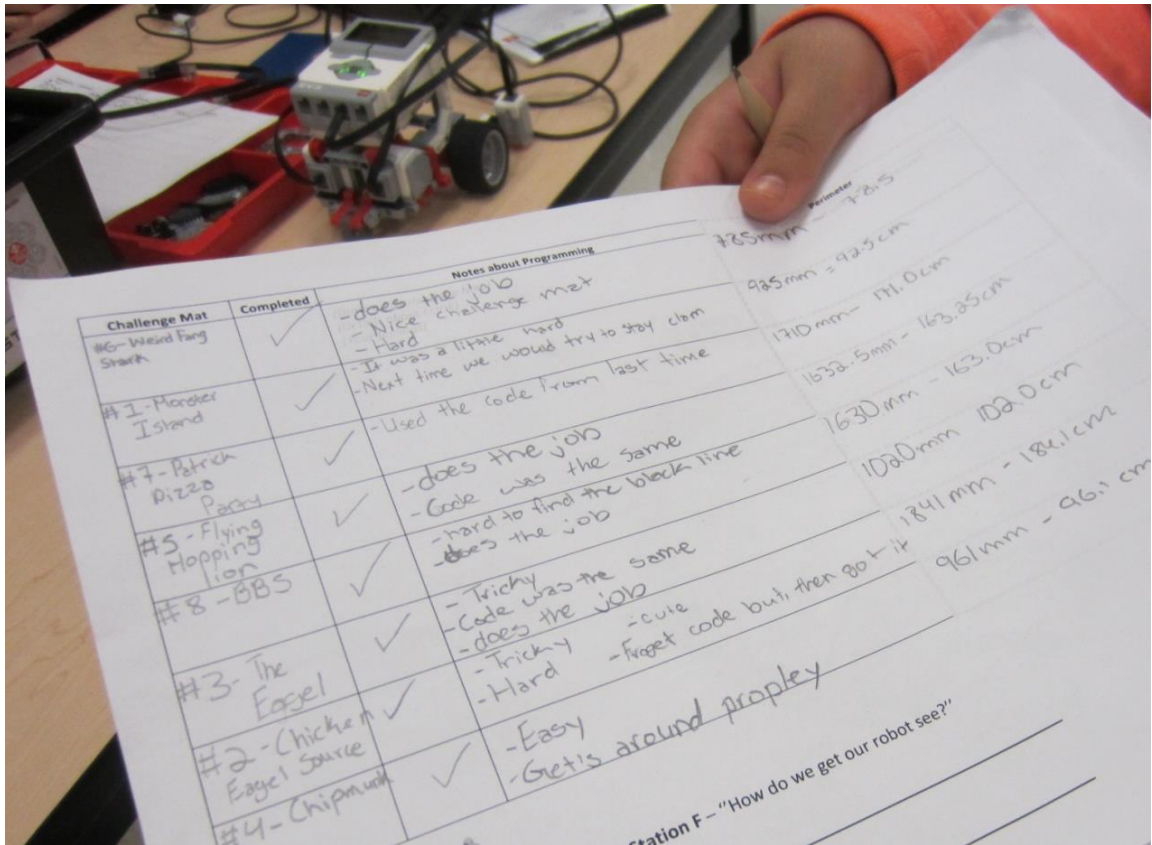 Challenge Mat Completed Notes about Programming Perimeter
#6- Weird Fang
Shark
-does the job
- Nice challenge mat
- Hard
785mm - 78.5
#1-Monster
Island
- It was a little hard
-Next time we would try to stay clam
925mm = 92.5cm
#7-Patrick
Pizza
Party
-Used the code from last time
1710mm- 171.0cm
#5-Flying
Hopping
lion
-does the job
- Code was the same
1632.5mm- 163.25cm
#8-BBS
-hard to find the black line
-does the job
1630mm - 163.0cm
#3- The
Eagel
- Tricky
-Code was the same
-does the job
1020mm 102.0cm
#2-Chicken
Eagel Source
- Tricky -cute
-Hard -Froget code but, then got it
1841mm - 184.1cm
#4-Chipmunk
-Easy
-Get's around propley
961mm - 96.1 cm
Station F – "How do we get our robot see?"